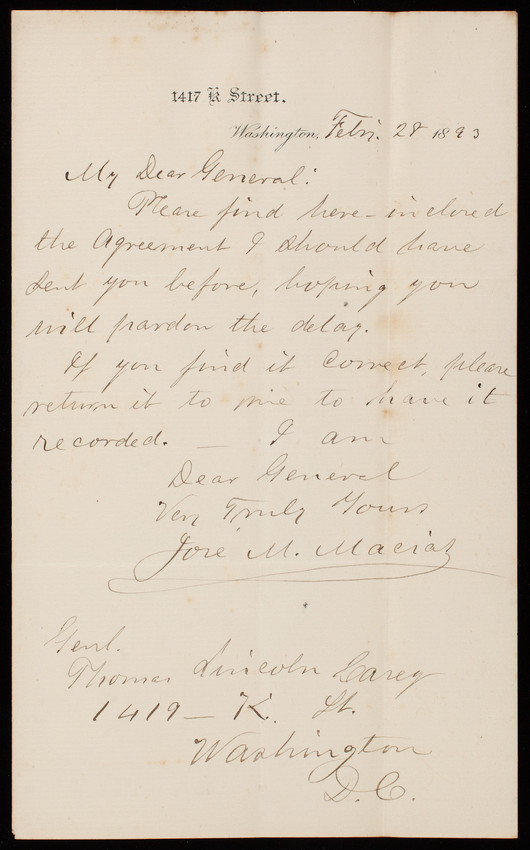 1417 K Street.
Washington, Feby. 28 1893
My Dear General:
Please find here-inclosed
the Agreement I should have
sent you before, hoping you
will pardon the delay.
If you find it correct, please
return it to me to have it
recorded. — I am
Dear General
Very Truly Yours
José M. Macias
Genl.
Thomas Lincoln Casey
1419 — K. St.
Washington
D.C.